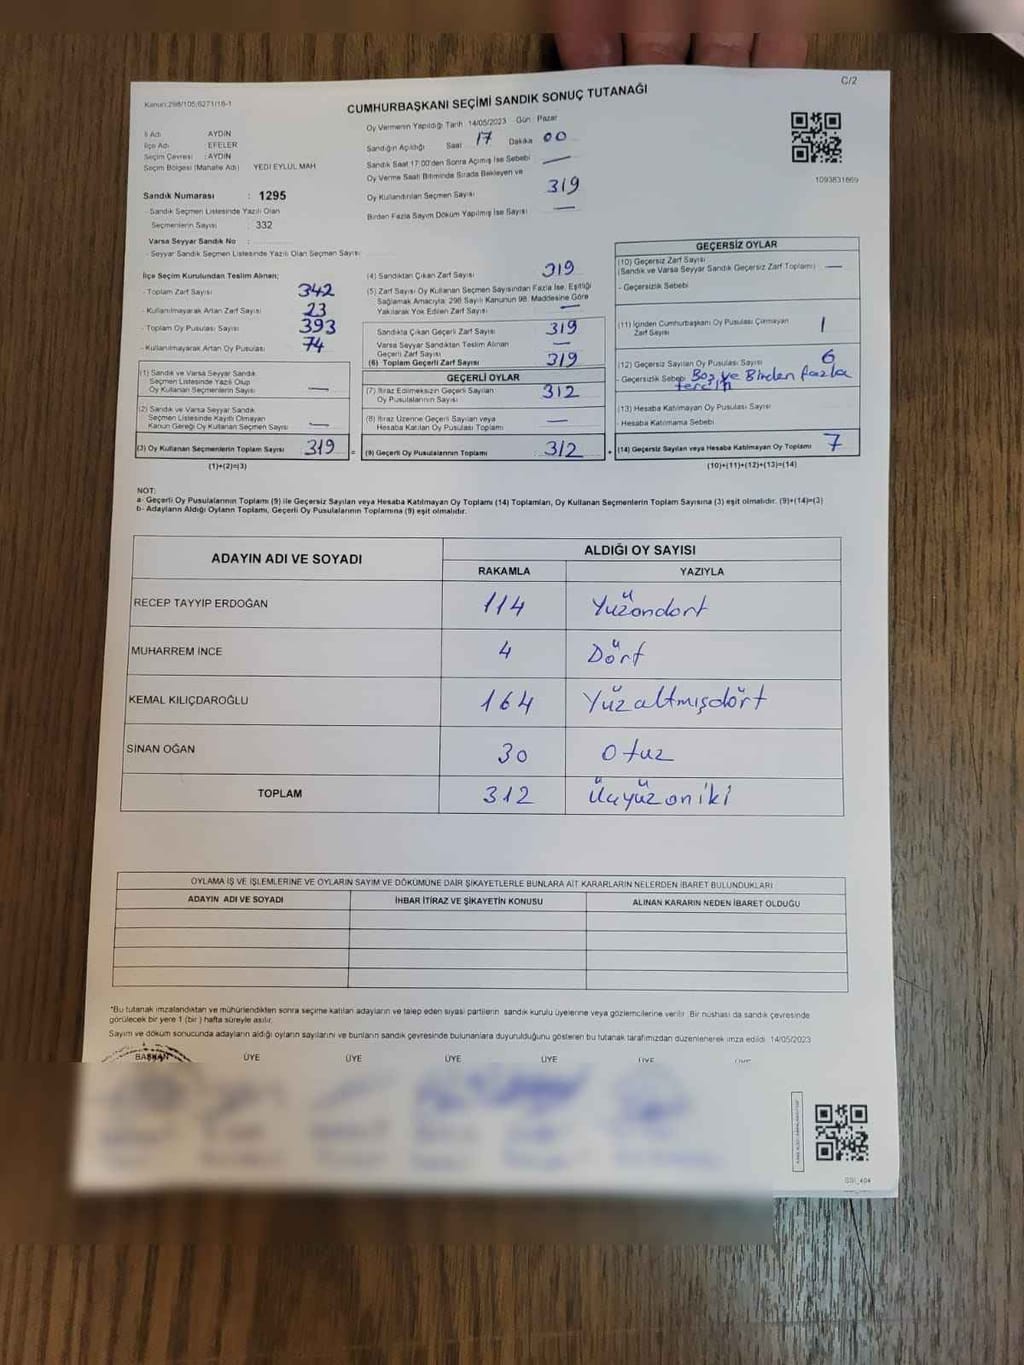 C/2
Kanun:298/105;6271/16-1
CUMHURBAŞKANI SEÇİMİ SANDIK SONUÇ TUTANAĞI
İli Adı AYDIN
İlçe Adı EFELER
Seçim Çevresi : AYDIN
Seçim Bölgesi (Mahalle Adı) YEDİ EYLÜL MAH
Oy Vermenin Yapıldığı Tarih :14/05/2023 Gün : Pazar
Sandığın Açıldığı Saat 17 Dakika 00
Sandık Saat 17:00'den Sonra Açılmış İse Sebebi —
Oy Verme Saati Bitiminde Sırada Bekleyen ve
Oy Kullandırılan Seçmen Sayısı 319
Birden Fazla Sayım Döküm Yapılmış İse Sayısı —
1093831869
Sandık Numarası : 1295
- Sandık Seçmen Listesinde Yazılı Olan
Seçmenlerin Sayısı : 332
Varsa Seyyar Sandık No :
- Seyyar Sandık Seçmen Listesinde Yazılı Olan Seçmen Sayısı
İlçe Seçim Kurulundan Teslim Alınan;
- Toplam Zarf Sayısı 342
- Kullanılmayarak Artan Zarf Sayısı 23
- Toplam Oy Pusulası Sayısı 393
- Kullanılmayarak Artan Oy Pusulası 74
(1) Sandık ve Varsa Seyyar Sandık
Seçmen Listesinde Yazılı Olup
Oy Kullanan Seçmenlerin Sayısı —
(2) Sandık ve Varsa Seyyar Sandık
Seçmen Listesinde Kayıtlı Olmayan
Kanun Gereği Oy Kullanan Seçmen Sayısı —
(3) Oy Kullanan Seçmenlerin Toplam Sayısı 319 =
(1)+(2)=(3)
(4) Sandıktan Çıkan Zarf Sayısı 319
(5) Zarf Sayısı Oy Kullanan Seçmen Sayısından Fazla İse, Eşitliği
Sağlamak Amacıyla; 298 Sayılı Kanunun 98. Maddesine Göre
Yakılarak Yok Edilen Zarf Sayısı —
Sandıkta Çıkan Geçerli Zarf Sayısı 319
Varsa Seyyar Sandıktan Teslim Alınan
Geçerli Zarf Sayısı —
(6) Toplam Geçerli Zarf Sayısı 319
GEÇERLİ OYLAR
(7) İtiraz Edilmeksizin Geçerli Sayılan
Oy Pusulalarının Sayısı 312
(8) İtiraz Üzerine Geçerli Sayılan veya
Hesaba Katılan Oy Pusulası Toplamı —
(9) Geçerli Oy Pusulalarının Toplamı : 312 +
GEÇERSİZ OYLAR
(10) Geçersiz Zarf Sayısı
(Sandık ve Varsa Seyyar Sandık Geçersiz Zarf Toplamı) —
- Geçersizlik Sebebi
(11) İçinden Cumhurbaşkanı Oy Pusulası Çıkmayan
Zarf Sayısı 1
(12) Geçersiz Sayılan Oy Pusulası Sayısı 6
- Geçersizlik Sebebi Boş ve Birden fazla
tercih
(13) Hesaba Katılmayan Oy Pusulası Sayısı
- Hesaba Katılmama Sebebi
(14) Geçersiz Sayılan veya Hesaba Katılmayan Oy Toplamı 7
(10)+(11)+(12)+(13)=(14)
NOT:
a- Geçerli Oy Pusulalarının Toplamı (9) ile Geçersiz Sayılan veya Hesaba Katılmayan Oy Toplamı (14) Toplamları, Oy Kullanan Seçmenlerin Toplam Sayısına (3) eşit olmalıdır. (9)+(14)=(3)
b- Adayların Aldığı Oyların Toplamı, Geçerli Oy Pusulalarının Toplamına (9) eşit olmalıdır.
ADAYIN ADI VE SOYADI ALDIĞI OY SAYISI
RAKAMLA YAZIYLA
RECEP TAYYİP ERDOĞAN 114 Yüzondört
MUHARREM İNCE 4 Dört
KEMAL KILIÇDAROĞLU 164 Yüzaltmışdört
SİNAN OĞAN 30 Otuz
TOPLAM 312 Üçyüzoniki
OYLAMA İŞ VE İŞLEMLERİNE VE OYLARIN SAYIM VE DÖKÜMÜNE DAİR ŞİKAYETLERLE BUNLARA AİT KARARLARIN NELERDEN İBARET BULUNDUKLARI
ADAYIN ADI VE SOYADI İHBAR İTİRAZ VE ŞİKAYETİN KONUSU ALINAN KARARIN NEDEN İBARET OLDUĞU
*Bu tutanak imzalandıktan ve mühürlendikten sonra seçime katılan adayların ve talep eden siyasi partilerin sandık kurulu üyelerine veya gözlemcilerine verilir. Bir nüshası da sandık çevresinde
görülecek bir yere 1 (bir) hafta süreyle asılır.
Sayım ve döküm sonucunda adayların aldığı oyların sayılarını ve bunların sandık çevresinde bulunanlara duyurulduğunu gösteren bu tutanak tarafımızdan düzenlenerek imza edildi. 14/05/2023
BAŞKAN ÜYE ÜYE ÜYE ÜYE ÜYE ÜYE